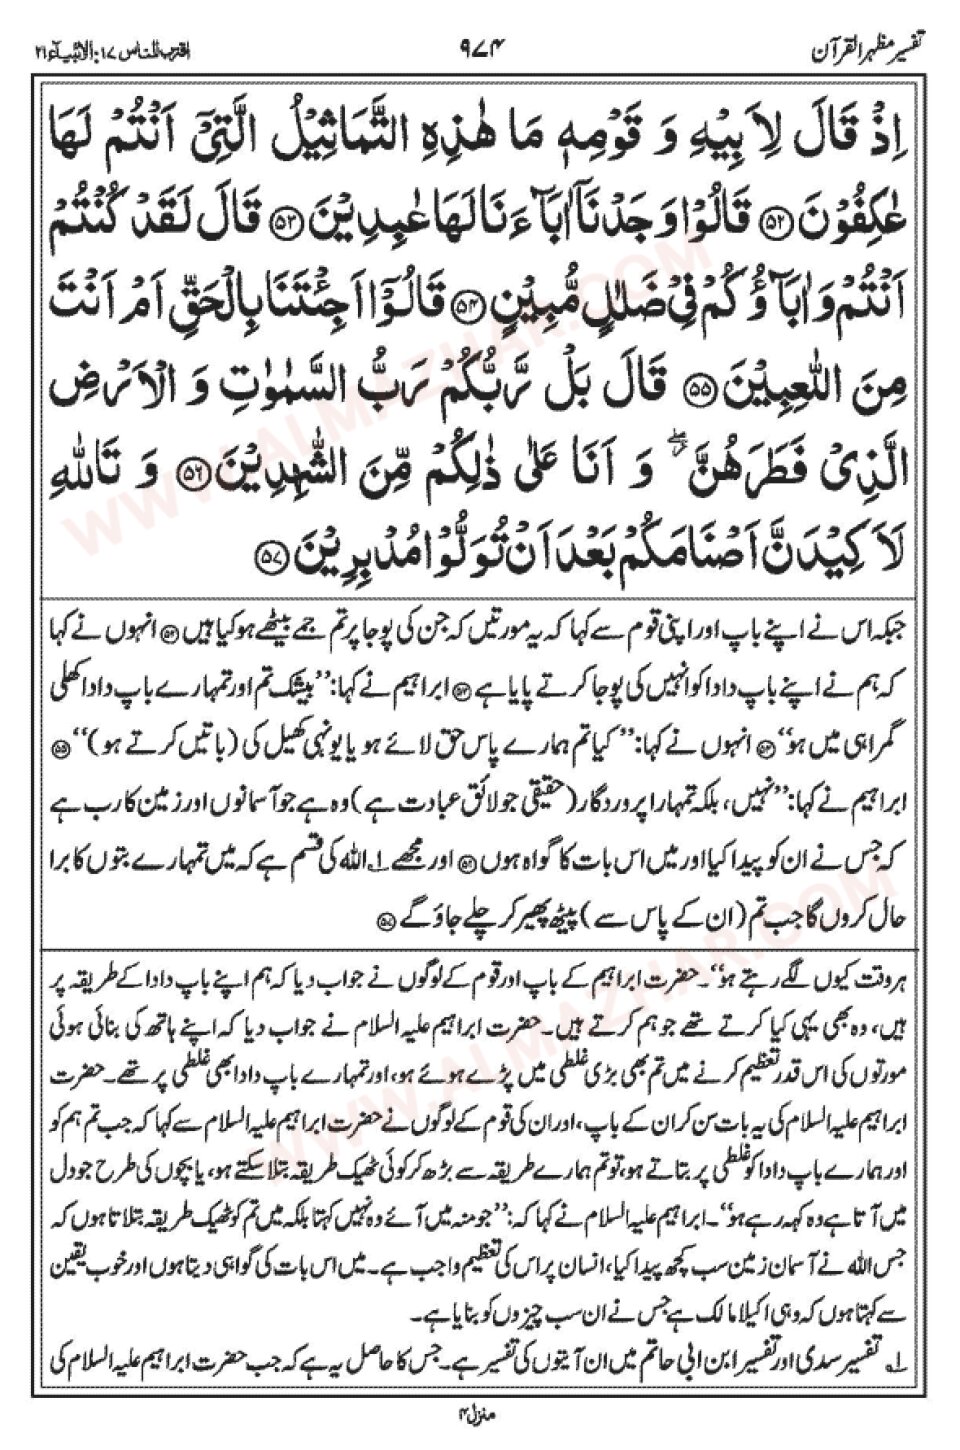 تفسیر مظہر القرآن ۹۷۴ اقترب للناس ۱۷: الانبیآء ۲۱
اِذْ قَالَ لِاَبِیْهِ وَ قَوْمِهٖ مَا هٰذِهِ التَّمَاثِیْلُ الَّتِیْۤ اَنْتُمْ لَهَا
عٰكِفُوْنَ ﴿۵۲﴾ قَالُوْا وَجَدْنَاۤ اٰبَآءَنَا لَهَا عٰبِدِیْنَ ﴿۵۳﴾ قَالَ لَقَدْ كُنْتُمْ
اَنْتُمْ وَ اٰبَآؤُكُمْ فِیْ ضَلٰلٍ مُّبِیْنٍ ﴿۵۴﴾ قَالُوْۤا اَجِئْتَنَا بِالْحَقِّ اَمْ اَنْتَ
مِنَ اللّٰعِبِیْنَ ﴿۵۵﴾ قَالَ بَلْ رَّبُّكُمْ رَبُّ السَّمٰوٰتِ وَ الْاَرْضِ
الَّذِیْ فَطَرَهُنَّ ۖ٘ وَ اَنَا عَلٰی ذٰلِكُمْ مِّنَ الشّٰهِدِیْنَ ﴿۵۶﴾ وَ تَاللّٰهِ
لَاَكِیْدَنَّ اَصْنَامَكُمْ بَعْدَ اَنْ تُوَلُّوْا مُدْبِرِیْنَ ﴿۵۷﴾
جبکہ اس نے اپنے باپ اور اپنی قوم سے کہا کہ یہ مورتیں کہ جن کی پوجا پر تم جمے بیٹھے ہو کیا ہیں ﴿۵۲﴾ انہوں نے کہا
کہ ہم نے اپنے باپ دادا کو انہیں کی پوجا کرتے پایا ہے ﴿۵۳﴾ ابراہیم نے کہا: ’’بیشک تم اور تمہارے باپ دادا کھلی
گمراہی میں ہو‘‘ ﴿۵۴﴾ انہوں نے کہا: ’’کیا تم ہمارے پاس حق لائے ہو یا یونہی کھیل کی (باتیں کرتے ہو)‘‘ ﴿۵۵﴾
ابراہیم نے کہا: ’’نہیں، بلکہ تمہارا پروردگار (حقیقی جو لائق عبادت ہے) وہ ہے جو آسمانوں اور زمین کا رب ہے
کہ جس نے ان کو پیدا کیا اور میں اس بات کا گواہ ہوں ﴿۵۶﴾ اور مجھے ۱؎ اللہ کی قسم ہے کہ میں تمہارے بتوں کا برا
حال کروں گا جب تم (ان کے پاس سے) پیٹھ پھیر کر چلے جاؤ گے ﴿۵۷﴾
ہر وقت کیوں لگے رہتے ہو‘‘۔ حضرت ابراہیم کے باپ اور قوم کے لوگوں نے جواب دیا کہ ہم اپنے باپ دادا کے طریقہ پر
ہیں، وہ بھی یہی کیا کرتے تھے جو ہم کرتے ہیں۔ حضرت ابراہیم علیہ السلام نے جواب دیا کہ اپنے ہاتھ کی بنائی ہوئی
مورتوں کی اس قدر تعظیم کرنے میں تم بھی بڑی غلطی میں پڑے ہوئے ہو، اور تمہارے باپ دادا بھی غلطی پر تھے۔ حضرت
ابراہیم علیہ السلام کی یہ بات سن کر ان کے باپ، اور ان کی قوم کے لوگوں نے حضرت ابراہیم علیہ السلام سے کہا کہ جب تم ہم کو
اور ہمارے باپ دادا کو غلطی پر بتاتے ہو، تو تم ہمارے طریقہ سے بڑھ کر کوئی ٹھیک طریقہ بتلا سکتے ہو، یا بچوں کی طرح جو دل
میں آتا ہے وہ کہہ رہے ہو‘‘۔ ابراہیم علیہ السلام نے کہا کہ: ’’جو منہ میں آئے وہ نہیں کہتا بلکہ میں تم کو ٹھیک طریقہ بتلاتا ہوں کہ
جس اللہ نے آسمان زمین سب کچھ پیدا کیا، انسان پر اس کی تعظیم واجب ہے۔ میں اس بات کی گواہی دیتا ہوں اور خوب یقین
سے کہتا ہوں کہ وہی اکیلا مالک ہے جس نے ان سب چیزوں کو بنایا ہے۔
۱؎ تفسیر سدی اور تفسیر ابن ابی حاتم میں ان آیتوں کی تفسیر ہے۔ جس کا حاصل یہ ہے کہ جب حضرت ابراہیم علیہ السلام کی
منزل ۴
WWW.ALMAZHAR.COM
WWW.ALMAZHAR.COM